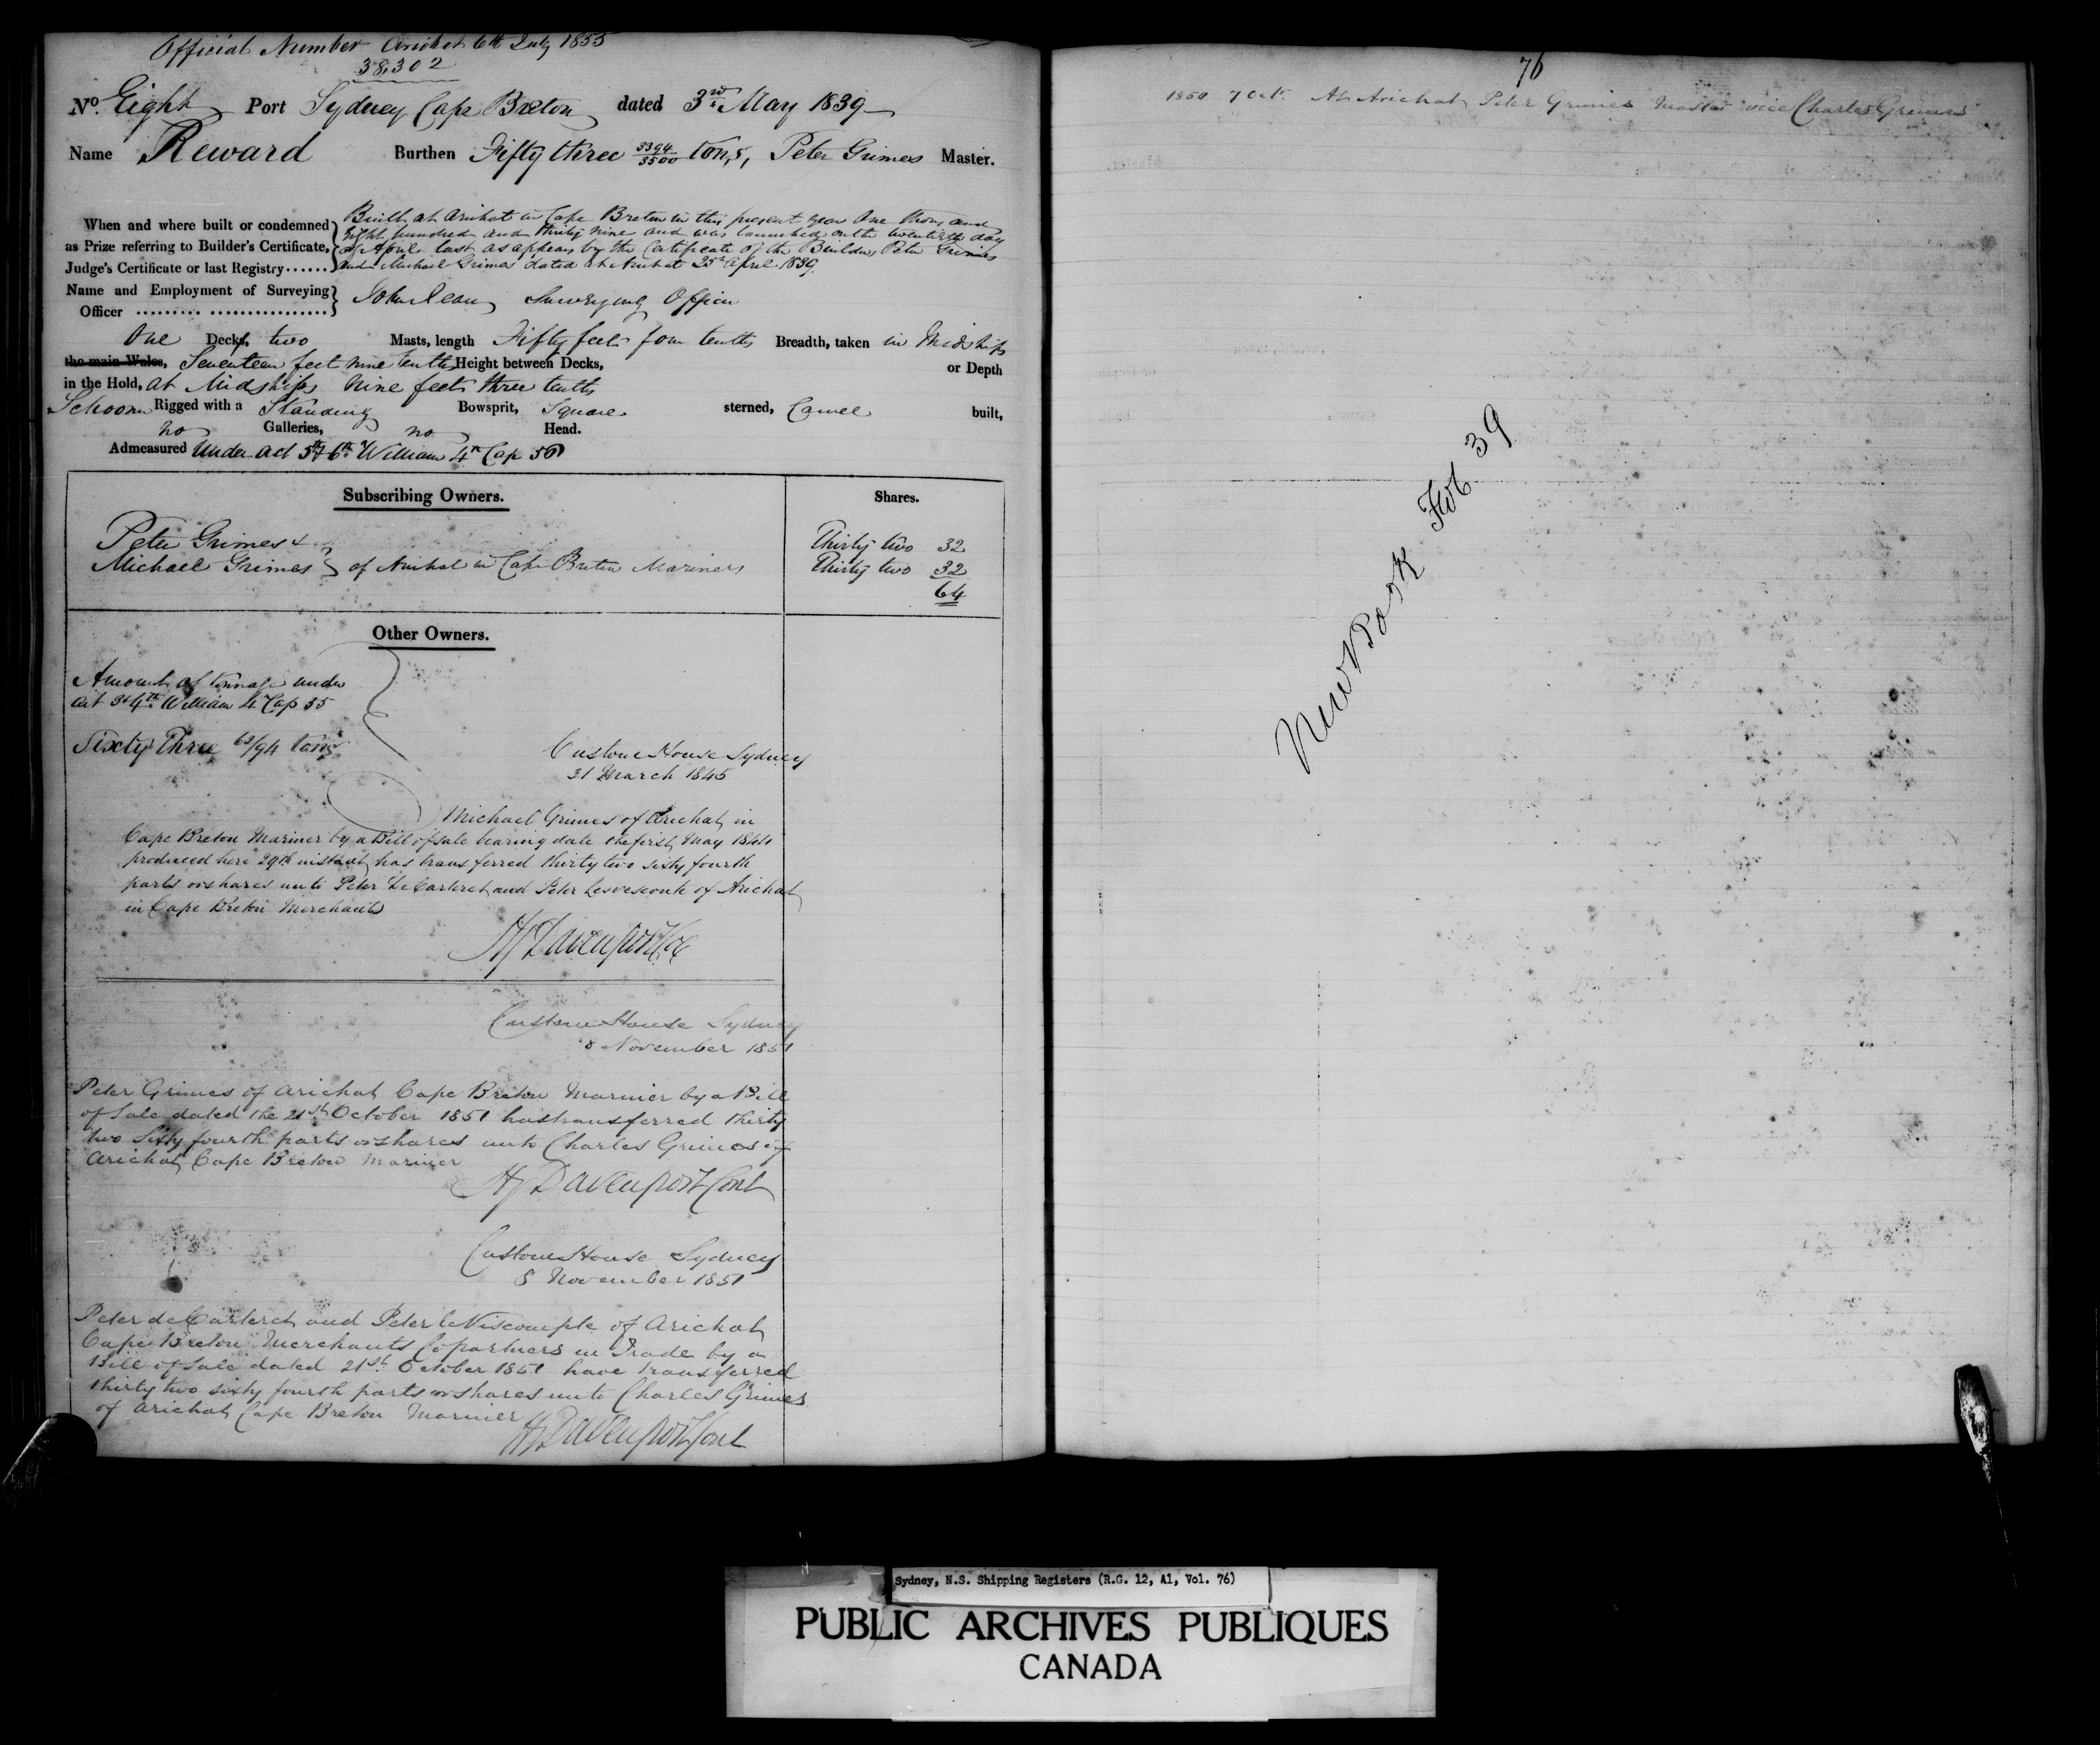 Official Number Arichat 6th July 1855
38,302
No. Eight Port Sydney Cape Breton dated 3rd May 1839
Name Reward Burthen Fifty three 3394/3500 tons, Peter Grimes Master.
When and where built or condemned as Prize referring to Builder's Certificate, Judge's Certificate or last Registry......
Built at Arichat in Cape Breton in this present year One thousand
Eight hundred and thirty nine and was launched on the twentieth day
of April last as appears by the Certificate of the Builders Peter Grimes
and Michael Grimes dated at Arichat 25th April 1839.
Name and Employment of Surveying Officer
John Jean Surveying Officer
One Decks, two Masts, length Fifty feet four tenths Breadth, taken in Midships
the main Wales, Seventeen feet nine tenths Height between Decks, or Depth
in the Hold, at Midships nine feet three tenths
Schooner Rigged with a Standing Bowsprit, Square sterned, Carvel built,
no Galleries, no Head.
Admeasured Under act 5th & 6th William 4th Cap 56
Subscribing Owners. Shares.
Peter Grimes & Thirty two 32
Michael Grimes } of Arichat in Cape Breton Mariners Thirty two 32
64
Other Owners.
Amount of tonnage under
act 3 & 4th William 4 Cap 55
Sixty Three 63/94 tons
Custom House Sydney
31 March 1845
Michael Grimes of Arichat in
Cape Breton Mariner by a Bill of sale bearing date the first May 1844
produced here 29th instant has transferred thirty two sixty fourth
parts or shares unto Peter De Carteret and Peter Levesconte of Arichat
in Cape Breton Merchants
H Davenport
Custom House Sydney
8 November 1851
Peter Grimes of Arichat Cape Breton Mariner by a Bill
of Sale dated the 21st October 1851 has transferred thirty
two Sixty fourth parts or shares unto Charles Grimes of
Arichat Cape Breton Mariner
H Davenport Cont
Custom House Sydney
8 November 1851
Peter de Carteret and Peter le Viscompte of Arichat
Cape Breton Merchants Copartners in Trade by a
Bill of Sale dated 21st October 1851 have transferred
thirty two sixty fourth parts or shares unto Charles Grimes
of Arichat Cape Breton Mariner
H Davenport Cont
76
1850 7 Oct. At Arichat Peter Grimes Master vice Charles Grimes
New Book Fol 39
Sydney, N.S. Shipping Registers (R.G. 12, A1, Vol. 76)
PUBLIC ARCHIVES PUBLIQUES
CANADA